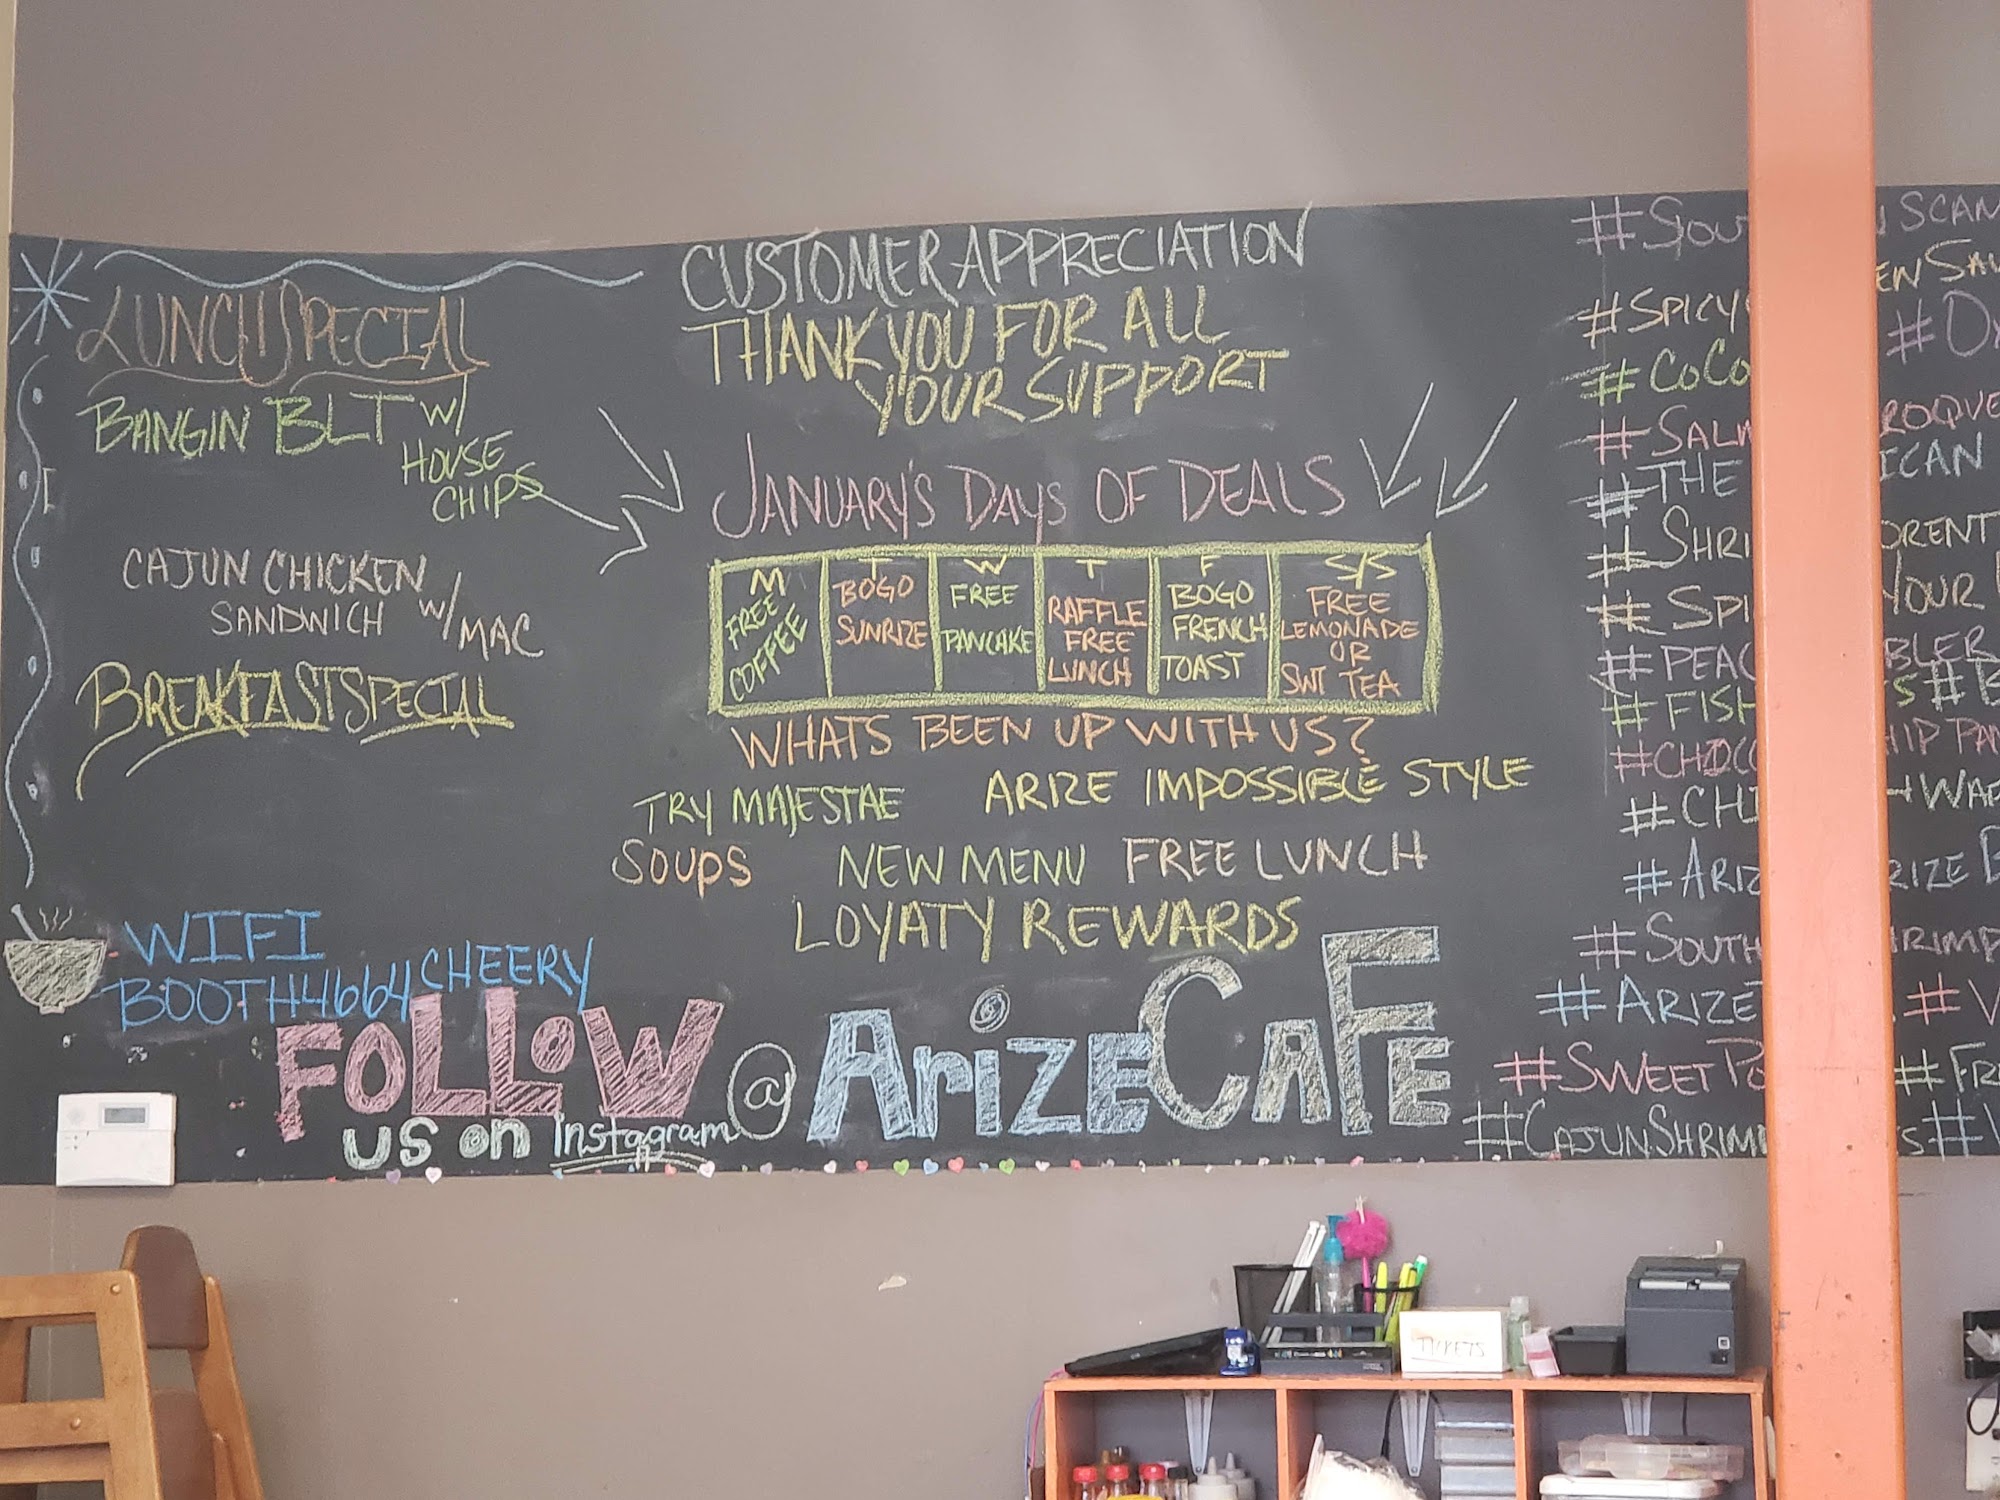 LUNCH SPECIAL
BANGIN BLT W/
HOUSE
CHIPS
CAJUN CHICKEN
SANDWICH W/
MAC
BREAKFAST SPECIAL
WIFI
BOOTH4664CHEERY
CUSTOMER APPRECIATION
THANK YOU FOR ALL
YOUR SUPPORT
JANUARY'S DAYS OF DEALS
M
FREE
COFFEE
T
BOGO
SUNRIZE
W
FREE
PANCAKE
T
RAFFLE
FREE
LUNCH
F
BOGO
FRENCH
TOAST
S/S
FREE
LEMONADE
OR
SWT TEA
WHATS BEEN UP WITH US?
TRY MAJESTAE
ARIZE IMPOSSIBLE STYLE
SOUPS
NEW MENU
FREE LUNCH
LOYATY REWARDS
FOLLOW @ARIZECAFE
US ON Instagram
#SOU SCAM
EN SAU
#SPICY
#OX
#COCO
#SALM ROQUE
#THE ICAN
#SHRI ORENT
#SPI YOUR
#PEAC BLER
#FISH S #B
#CHOCO HIP PAN
#CHI H WAF
#ARIZ RIZE B
#SOUTH HRIMP
#ARIZE #V
#SWEET PO #FR
#CAJUNSHRIMP S #V
TICKETS